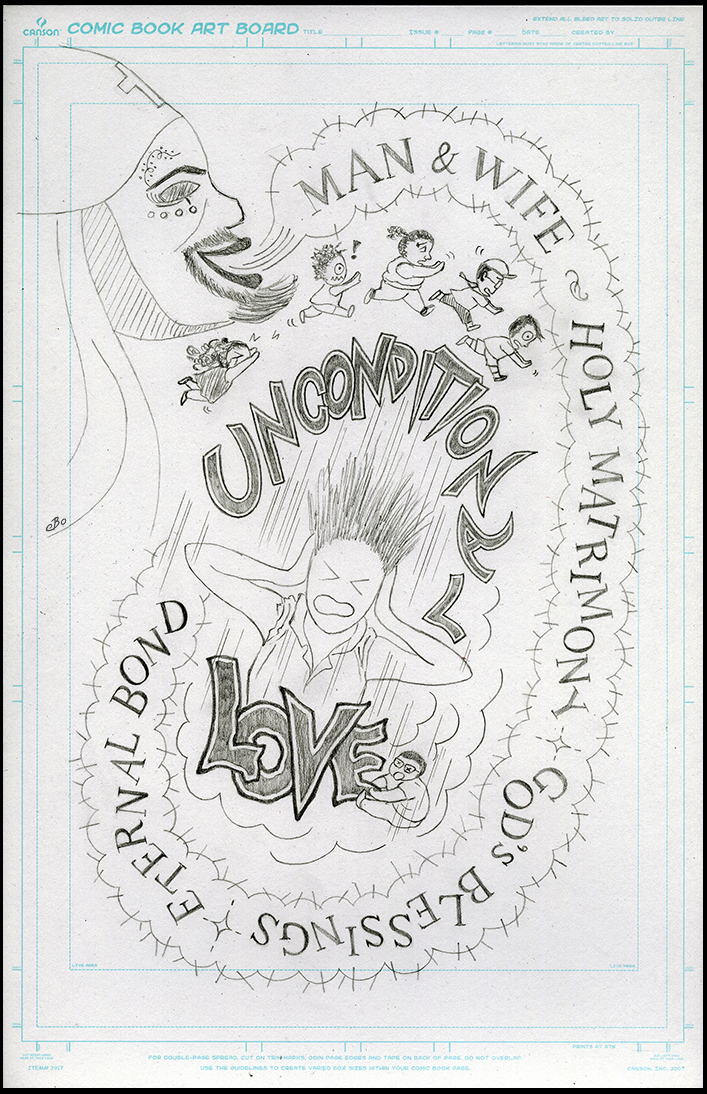 EXTEND ALL BLEED ART TO SOLID OUTER LINE
CANSON COMIC BOOK ART BOARD TITLE ISSUE # PAGE # DATE CREATED BY
MAN & WIFE ~ HOLY MATRIMONY
GOD'S BLESSINGS
ETERNAL BOND
!
UNCONDITIONAL
LOVE
LIVE AREA LIVE AREA
PRINTS AT 67%
FOR DOUBLE-PAGE SPREAD, CUT ON TRIM MARKS, JOIN PAGE EDGES AND TAPE ON BACK OF PAGE. DO NOT OVERLAP.
USE THE GUIDELINES TO CREATE VARIED BOX SIZES WITHIN YOUR COMIC BOOK PAGE.
CANSON, INC. 2007